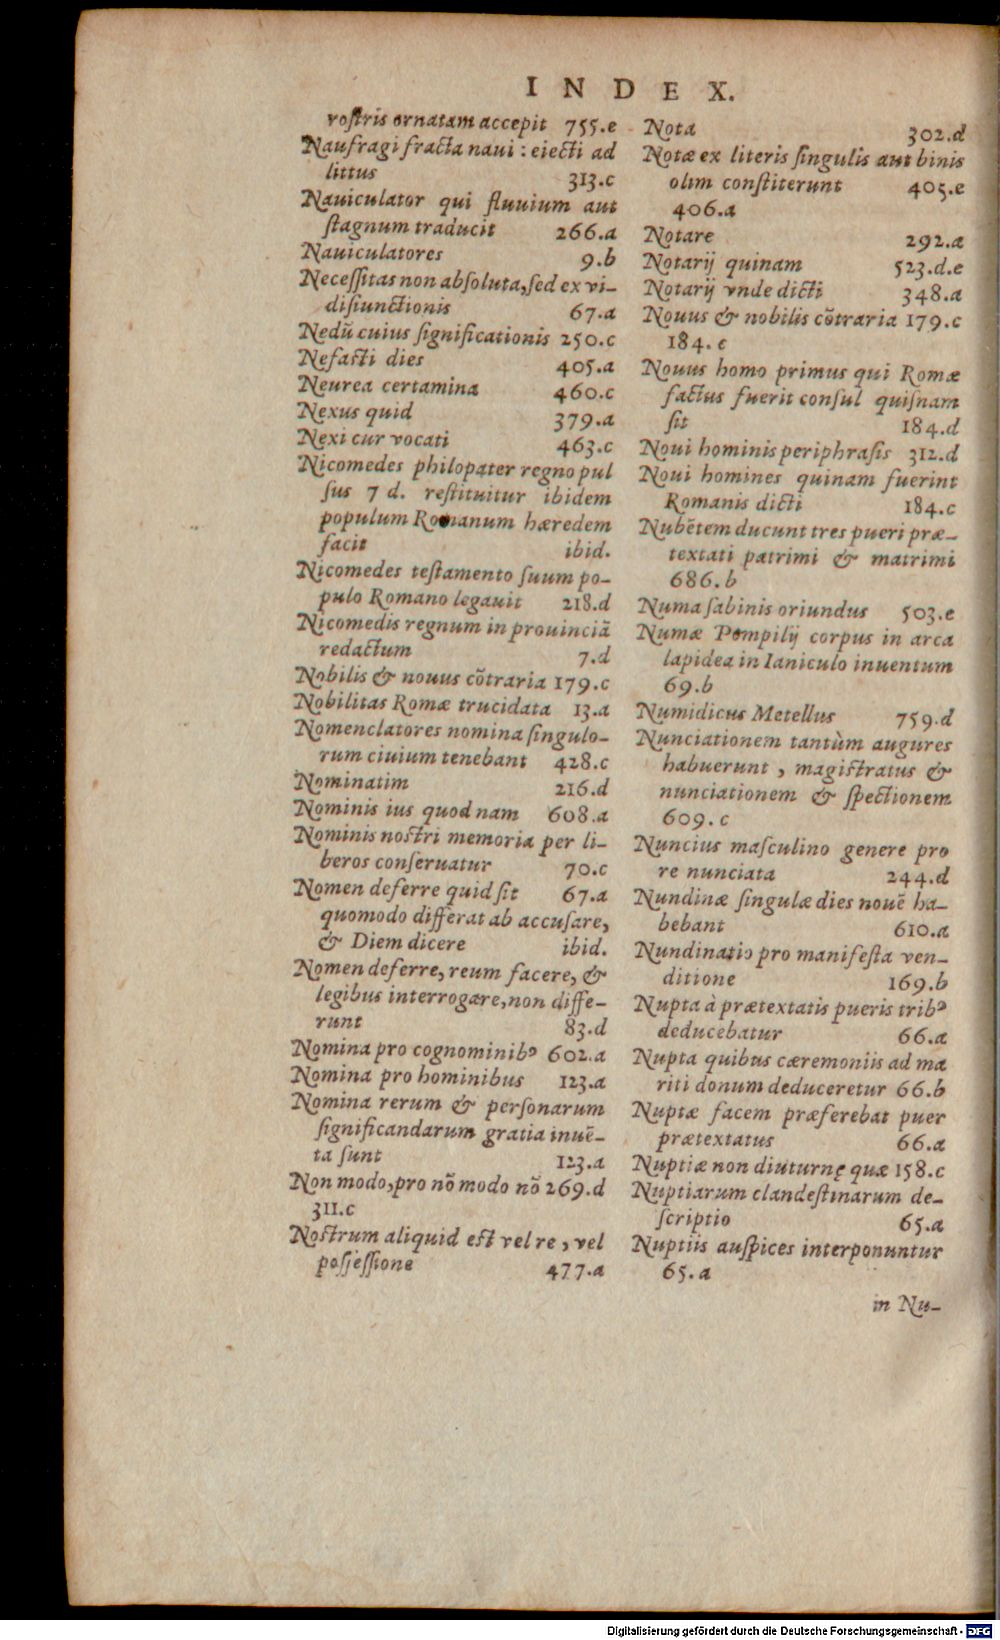 INDEX.
rostris ornatam accepit 755.e
Naufragi fracta naui: eiecti ad
littus 313.c
Nauiculator qui fluuium aut
stagnum traducit 266.a
Nauiculatores 9.b
Necessitas non absoluta, sed ex vi-
disiunctionis 67.a
Nedũ cuius significationis 250.c
Nefasti dies 405.a
Neurea certamina 460.c
Nexus quid 379.a
Nexi cur vocati 463.c
Nicomedes philopater regno pul
sus 7 d. restituitur ibidem
populum Romanum hæredem
facit ibid.
Nicomedes testamento suum po-
pulo Romano legauit 218.d
Nicomedis regnum in prouinciã
redactum 7.d
Nobilis & nouus cõtraria 179.c
Nobilitas Romæ trucidata 13.a
Nomenclatores nomina singulo-
rum ciuium tenebant 428.c
Nominatim 216.d
Nominis ius quod nam 608.a
Nominis nostri memoria per li-
beros conseruatur 70.c
Nomen deferre quid sit 67.a
quomodo differat ab accusare,
& Diem dicere ibid.
Nomen deferre, reum facere, &
legibus interrogare, non diffe-
runt 83.d
Nomina pro cognominibꝰ 602.a
Nomina pro hominibus 123.a
Nomina rerum & personarum
significandarum gratia inuẽ-
ta sunt 123.a
Non modo, pro nõ modo nõ 269.d
311.c
Nostrum aliquid est vel re, vel
possessione 477.a
Nota 302.d
Notæ ex literis singulis aut binis
olim constiterunt 405.e
406.a
Notare 292.a
Notarij quinam 523.d.e
Notarij vnde dicti 348.a
Nouus & nobilis cõtraria 179.c
184.c
Nouus homo primus qui Romæ
factus fuerit consul quisnam
sit 184.d
Noui hominis periphrasis 312.d
Noui homines quinam fuerint
Romanis dicti 184.c
Nubẽtem ducunt tres pueri præ-
textati patrimi & matrimi
686.b
Numa sabinis oriundus 503.e
Numæ Pompilij corpus in arca
lapidea in Ianiculo inuentum
69.b
Numidicus Metellus 759.d
Nunciationem tantùm augures
habuerunt, magistratus &
nunciationem & spectionem
609.c
Nuncius masculino genere pro
re nunciata 244.d
Nundinæ singulæ dies nouẽ ha-
bebant 610.a
Nundinatio pro manifesta ven-
ditione 169.b
Nupta à prætextatis pueris tribꝰ
deducebatur 66.a
Nupta quibus cæremoniis ad ma
riti donum deduceretur 66.b
Nuptæ facem præferebat puer
prætextatus 66.a
Nuptiæ non diuturnę quæ 158.c
Nuptiarum clandestinarum de-
scriptio 65.a
Nuptiis auspices interponuntur
65.a
in Nu-
Digitalisierung gefördert durch die Deutsche Forschungsgemeinschaft - DFG